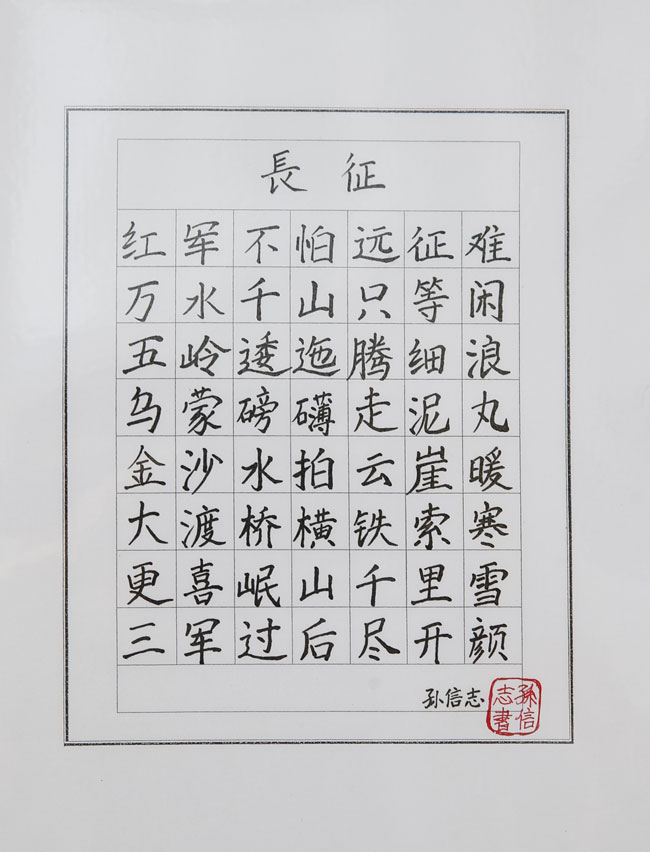 長征
红军不怕远征难
万水千山只等闲
五岭逶迤腾细浪
乌蒙磅礴走泥丸
金沙水拍云崖暖
大渡桥横铁索寒
更喜岷山千里雪
三军过后尽开颜
孙信志
孫信
志書